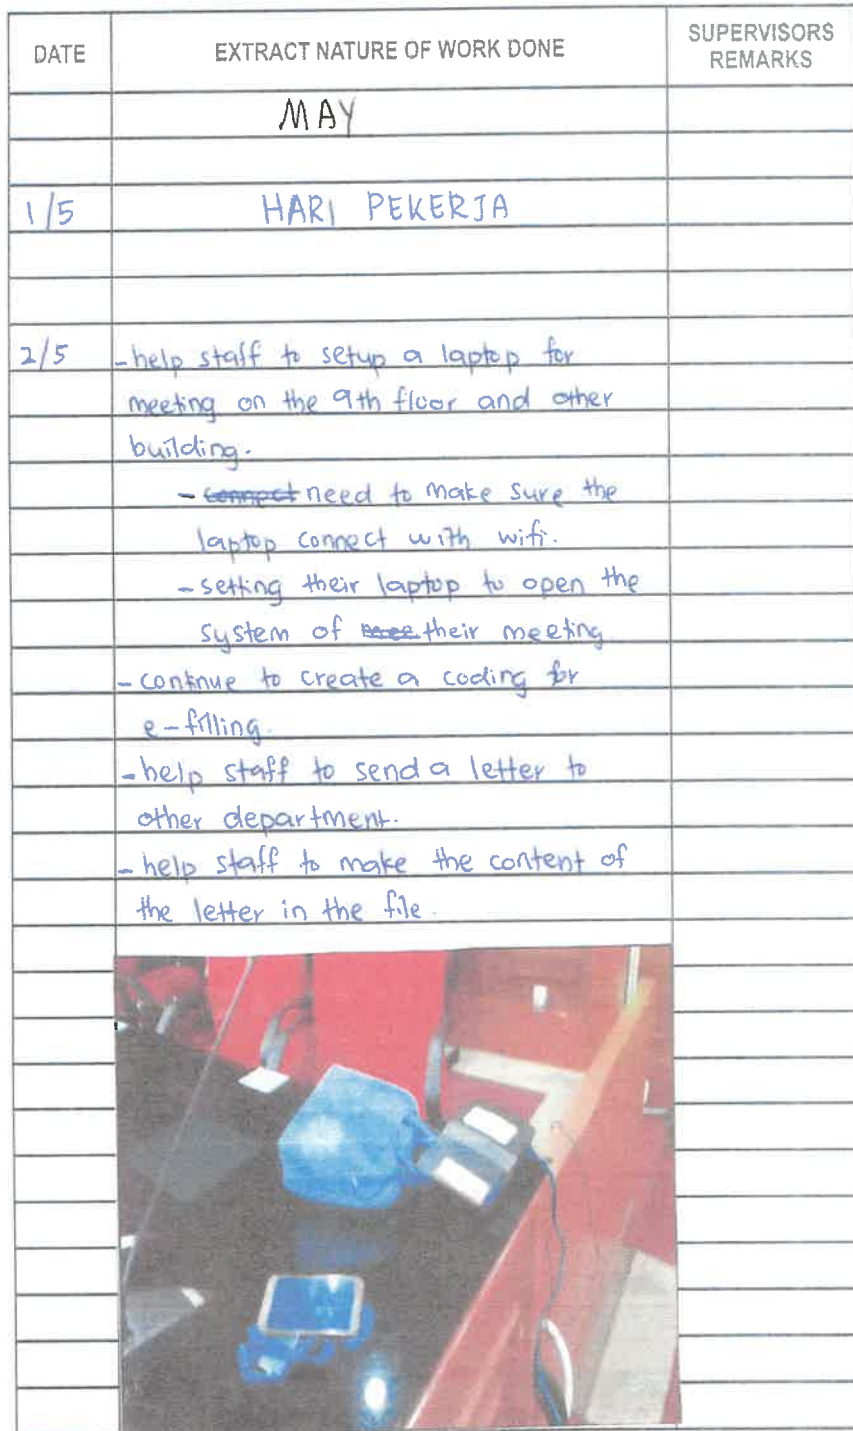 DATE EXTRACT NATURE OF WORK DONE SUPERVISORS REMARKS
MAY
1/5 HARI PEKERJA
2/5 -help staff to setup a laptop for
meeting on the 9th floor and other
building.
- connect need to make sure the
laptop connect with wifi.
- setting their laptop to open the
system of mee their meeting
- continue to create a coding for
e-filling.
- help staff to send a letter to
other department.
- help staff to make the content of
the letter in the file.